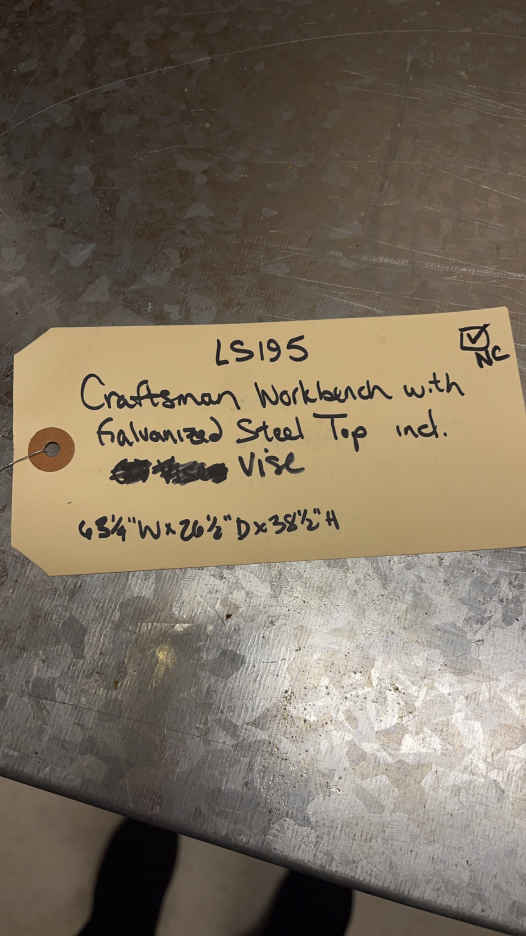 LS195
NC
Craftsman Workbench with
Galvanized Steel Top incl.
Vise
63¼"W x 26½" D x 38½" H